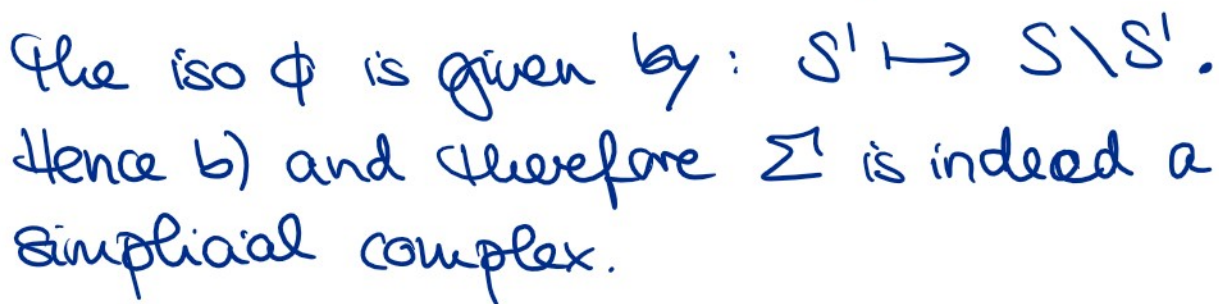 The iso ϕ is given by : S' ↦ S \ S'.
Hence b) and therefore Σ is indeed a
simplicial complex.